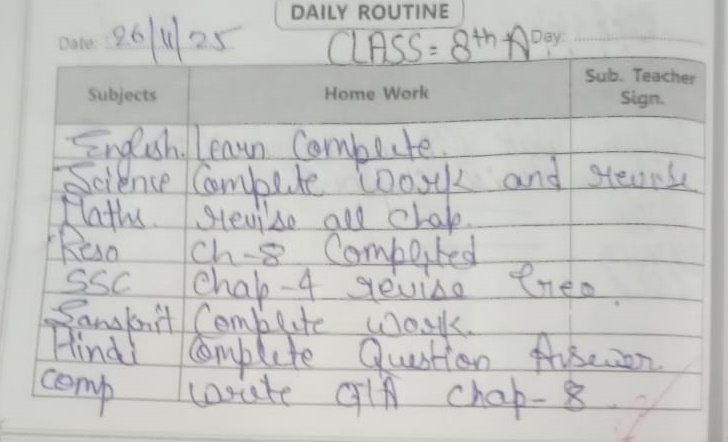 DAILY ROUTINE
Date. 26/11/25 CLASS = 8th A Day:
Subjects Home Work Sub. Teacher Sign.
English. learn Complete.
Science Complete work and revise
Maths. revise all chap.
Reso Ch-8 Completed
SSC Chap-4 revise Creo.
Sanskrit Complete work.
Hindi Complete Question Answer.
Comp write Q/A chap-8.